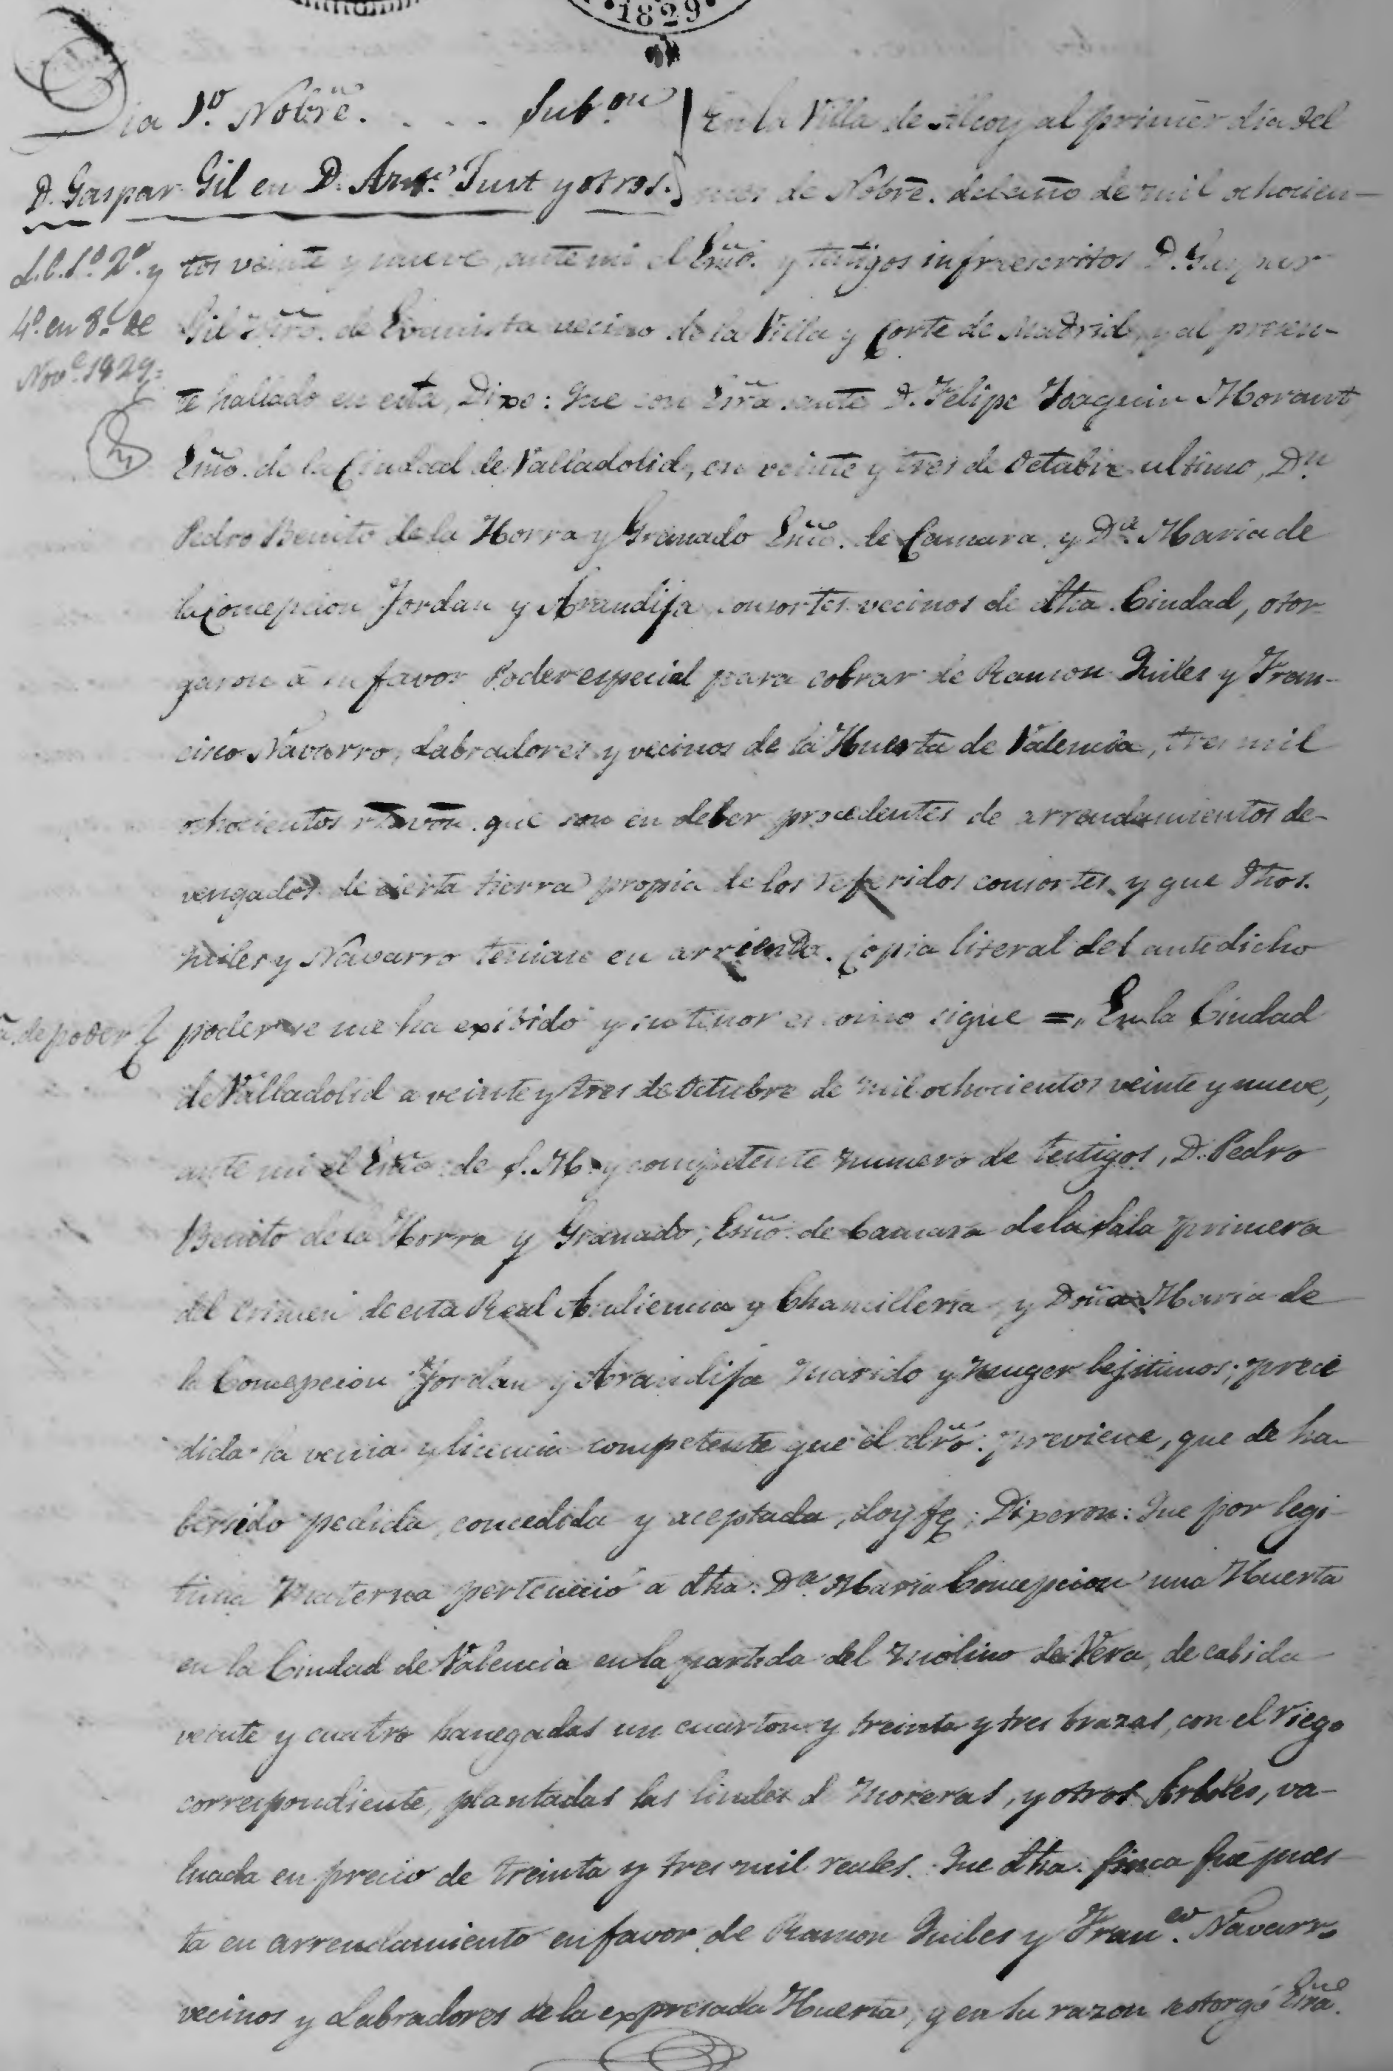 1829
Dia 1º Nobre. . . . . Subon
D. Gaspar Gil en D. Anto. Just y otros.
L.C.S.º 2º y
4º en 8 de
Nove. 1829
En la Villa de Alcoy al primer dia del
mes de Nobre. del año de mil ochocien-
tos veinte y nueve, ante mi el Esno. y testigos infraescritos D. Gaspar
Gil Mro. de Evanista vecino de la Villa y Corte de Madrid, y al presen-
te hallado en esta, Dixo: Que con Esra. ante D. Felipe Joaquin Morant,
Esno. de la Ciudad de Valladolid, en veinte y tres de Octubre ultimo, Dn.
Pedro Benito de la Horra y Granado Esno. de Camara, y Da. Maria de
la Concepcion Jordan y Arandija consortes vecinos de dha. Ciudad, otor-
garon à su favor Poder especial para cobrar de Ramon Quiles y Fran-
cisco Navarro, Labradores y vecinos de la Huerta de Valencia, tres mil
ochocientos rs. von. que son en deber procedentes de arrendamientos de-
vengados de cierta tierra propia de los referidos consortes y que dhos.
Quiles y Navarro tenian en arriendo. Copia literal del antedicho
a. de poder
poder se me ha exibido y su tenor es como sigue =,, En la Ciudad
de Valladolid a veinte y tres de Octubre de mil ochocientos veinte y nueve,
ante mi el Esno. de S. M. y competente numero de testigos, D. Pedro
Benito de la Horra y Granado, Esno. de Camara de la Sala primera
del crimen de esta Real Audiencia y Chancilleria y Doña Maria de
la Concepcion Jordan y Arandija marido y muger lejitimos; prece
dida la venia y licencia competente que el dro. previene, que de ha-
ber sido pedida, concedida y aceptada, doy fe; Dixeron: Que por legi-
tima materna pertenecio a dha. Da. Maria Concepcion una Huerta
en la Ciudad de Valencia en la partida del molino de Vera, de cabida
veinte y cuatro hanegadas un cuarton y treinta y tres brazas, con el riego
correspondiente, plantadas las lindes d moreras, y otros Arboles, va-
luada en precio de treinta y tres mil reales. Que dha. finca fué pues-
ta en arrendamiento en favor de Ramon Quiles y Franco. Navarro
vecinos y Labradores de la expresada Huerta, y en su razon se otorgó Esra. que